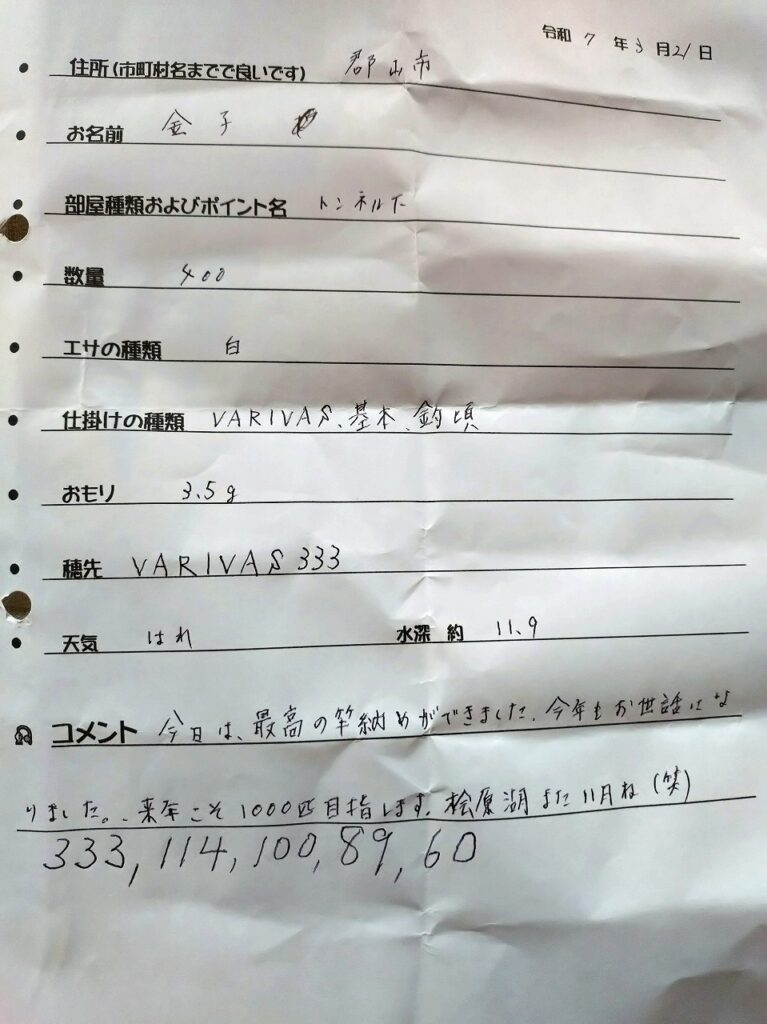 令和 7 年 3 月 21 日
住所(市町村名まででで良いです) 郡山市
お名前 金子
部屋種類およびポイント名 トンネル下
数量 400
エサの種類 白
仕掛けの種類 VARIVAS、基本、釣頃
おもり 3.5g
穂先 VARIVAS 333
天気 はれ 水深 約 11.9
コメント 今日は、最高の竿納めができました。今年もお世話にな
りました。、来年こそ1000匹目指します。桧原湖また11月ね(笑)
333, 114, 100, 89, 60